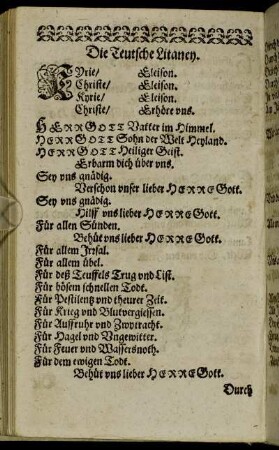 Die Teutsche Litaney.
KYrie/ Eleison.
Christe/ Eleison.
Kyrie/ Eleison.
Christe/ Erhöre vns.
HERR GOTT Vatter im Himmel.
HERR GOTT Sohn der Welt Heyland.
HERR GOTT Heiliger Geist.
Erbarm dich über vns.
Sey vns gnädig.
Verschon vnser lieber HERRE Gott.
Sey vns gnädig.
Hilff vns lieber HERRE Gott.
Für allen Sünden.
Behüt vns lieber HERRE Gott.
Für allem Irrsal.
Für allem übel.
Für deß Teuffels Trug vnd List.
Für bösem schnellen Todt.
Für Pestilentz vnd theurer Zeit.
Für Krieg vnd Blutvergiessen.
Für Auffruhr vnd Zwytracht.
Für Hagel vnd Vngewitter.
Für Feuer vnd Wassersnoth.
Für dem ewigen Todt.
Behüt vns lieber HERRE Gott.
Durch